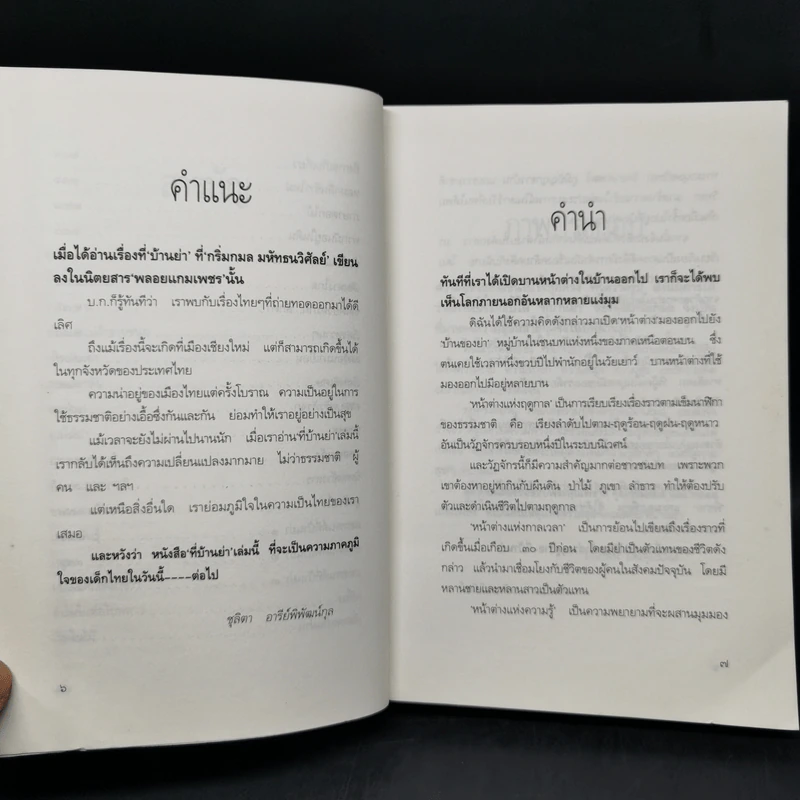 คำแนะ
เมื่อได้อ่านเรื่องที่‘บ้านย่า’ ที่‘กริ่มกมล มหัทธนวิศัลย์’ เขียน
ลงในนิตยสาร‘พลอยแกมเพชร’นั้น
บ.ก.ก็รู้ทันทีว่า เราพบกับเรื่องไทยๆที่ถ่ายทอดออกมาได้ดี
เลิศ
ถึงแม้เรื่องนี้จะเกิดที่เมืองเชียงใหม่ แต่ก็สามารถเกิดขึ้นได้
ในทุกจังหวัดของประเทศไทย
ความน่าอยู่ของเมืองไทยแต่ครั้งโบราณ ความเป็นอยู่ในการ
ใช้ธรรมชาติอย่างเอื้อซึ่งกันและกัน ย่อมทำให้เราอยู่อย่างเป็นสุข
แม้เวลาจะยังไม่ผ่านไปนานนัก เมื่อเราอ่าน‘ที่บ้านย่า’เล่มนี้
เรากลับได้เห็นถึงความเปลี่ยนแปลงมากมาย ไม่ว่าธรรมชาติ ผู้
คน และ ฯลฯ
แต่เหนือสิ่งอื่นใด เราย่อมภูมิใจในความเป็นไทยของเรา
เสมอ
และหวังว่า หนังสือ‘ที่บ้านย่า’เล่มนี้ ที่จะเป็นความภาคภูมิ
ใจของเด็กไทยในวันนี้----ต่อไป
ชุลิตา อารีย์พิพัฒน์กุล
๖
คำนำ
ทันทีที่เราได้เปิดบานหน้าต่างในบ้านออกไป เราก็จะได้พบ
เห็นโลกภายนอกอันหลากหลายแง่มุม
ดิฉันได้ใช้ความคิดดังกล่าวมาเปิด‘หน้าต่าง’มองออกไปยัง
‘บ้านของย่า’ หมู่บ้านในชนบทแห่งหนึ่งของภาคเหนือตอนบน ซึ่ง
ตนเคยใช้เวลาหนึ่งขวบปีไปพำนักอยู่ในวัยเยาว์ บานหน้าต่างที่ใช้
มองออกไปมีอยู่หลายบาน
‘หน้าต่างแห่งฤดูกาล’ เป็นการเรียบเรียงเรื่องราวตามเข็มนาฬิกา
ของธรรมชาติ คือ เรียงลำดับไปตาม-ฤดูร้อน-ฤดูฝน-ฤดูหนาว
อันเป็นวัฏจักรครบรอบหนึ่งปีในระบบนิเวศน์
และวัฏจักรนี้ก็มีความสำคัญมากต่อชาวชนบท เพราะพวก
เขาต้องหาอยู่หากินกับผืนดิน ป่าไม้ ภูเขา ลำธาร ทำให้ต้องปรับ
ตัวและดำเนินชีวิตไปตามฤดูกาล
‘หน้าต่างแห่งกาลเวลา’ เป็นการย้อนไปเขียนถึงเรื่องราวที่
เกิดขึ้นเมื่อเกือบ ๓๐ ปีก่อน โดยมีย่าเป็นตัวแทนของชีวิตดัง
กล่าว แล้วนำมาเชื่อมโยงกับชีวิตของผู้คนในสังคมปัจจุบัน โดยมี
หลานชายและหลานสาวเป็นตัวแทน
‘หน้าต่างแห่งความรู้’ เป็นความพยายามที่จะผสานมุมมอง
๗